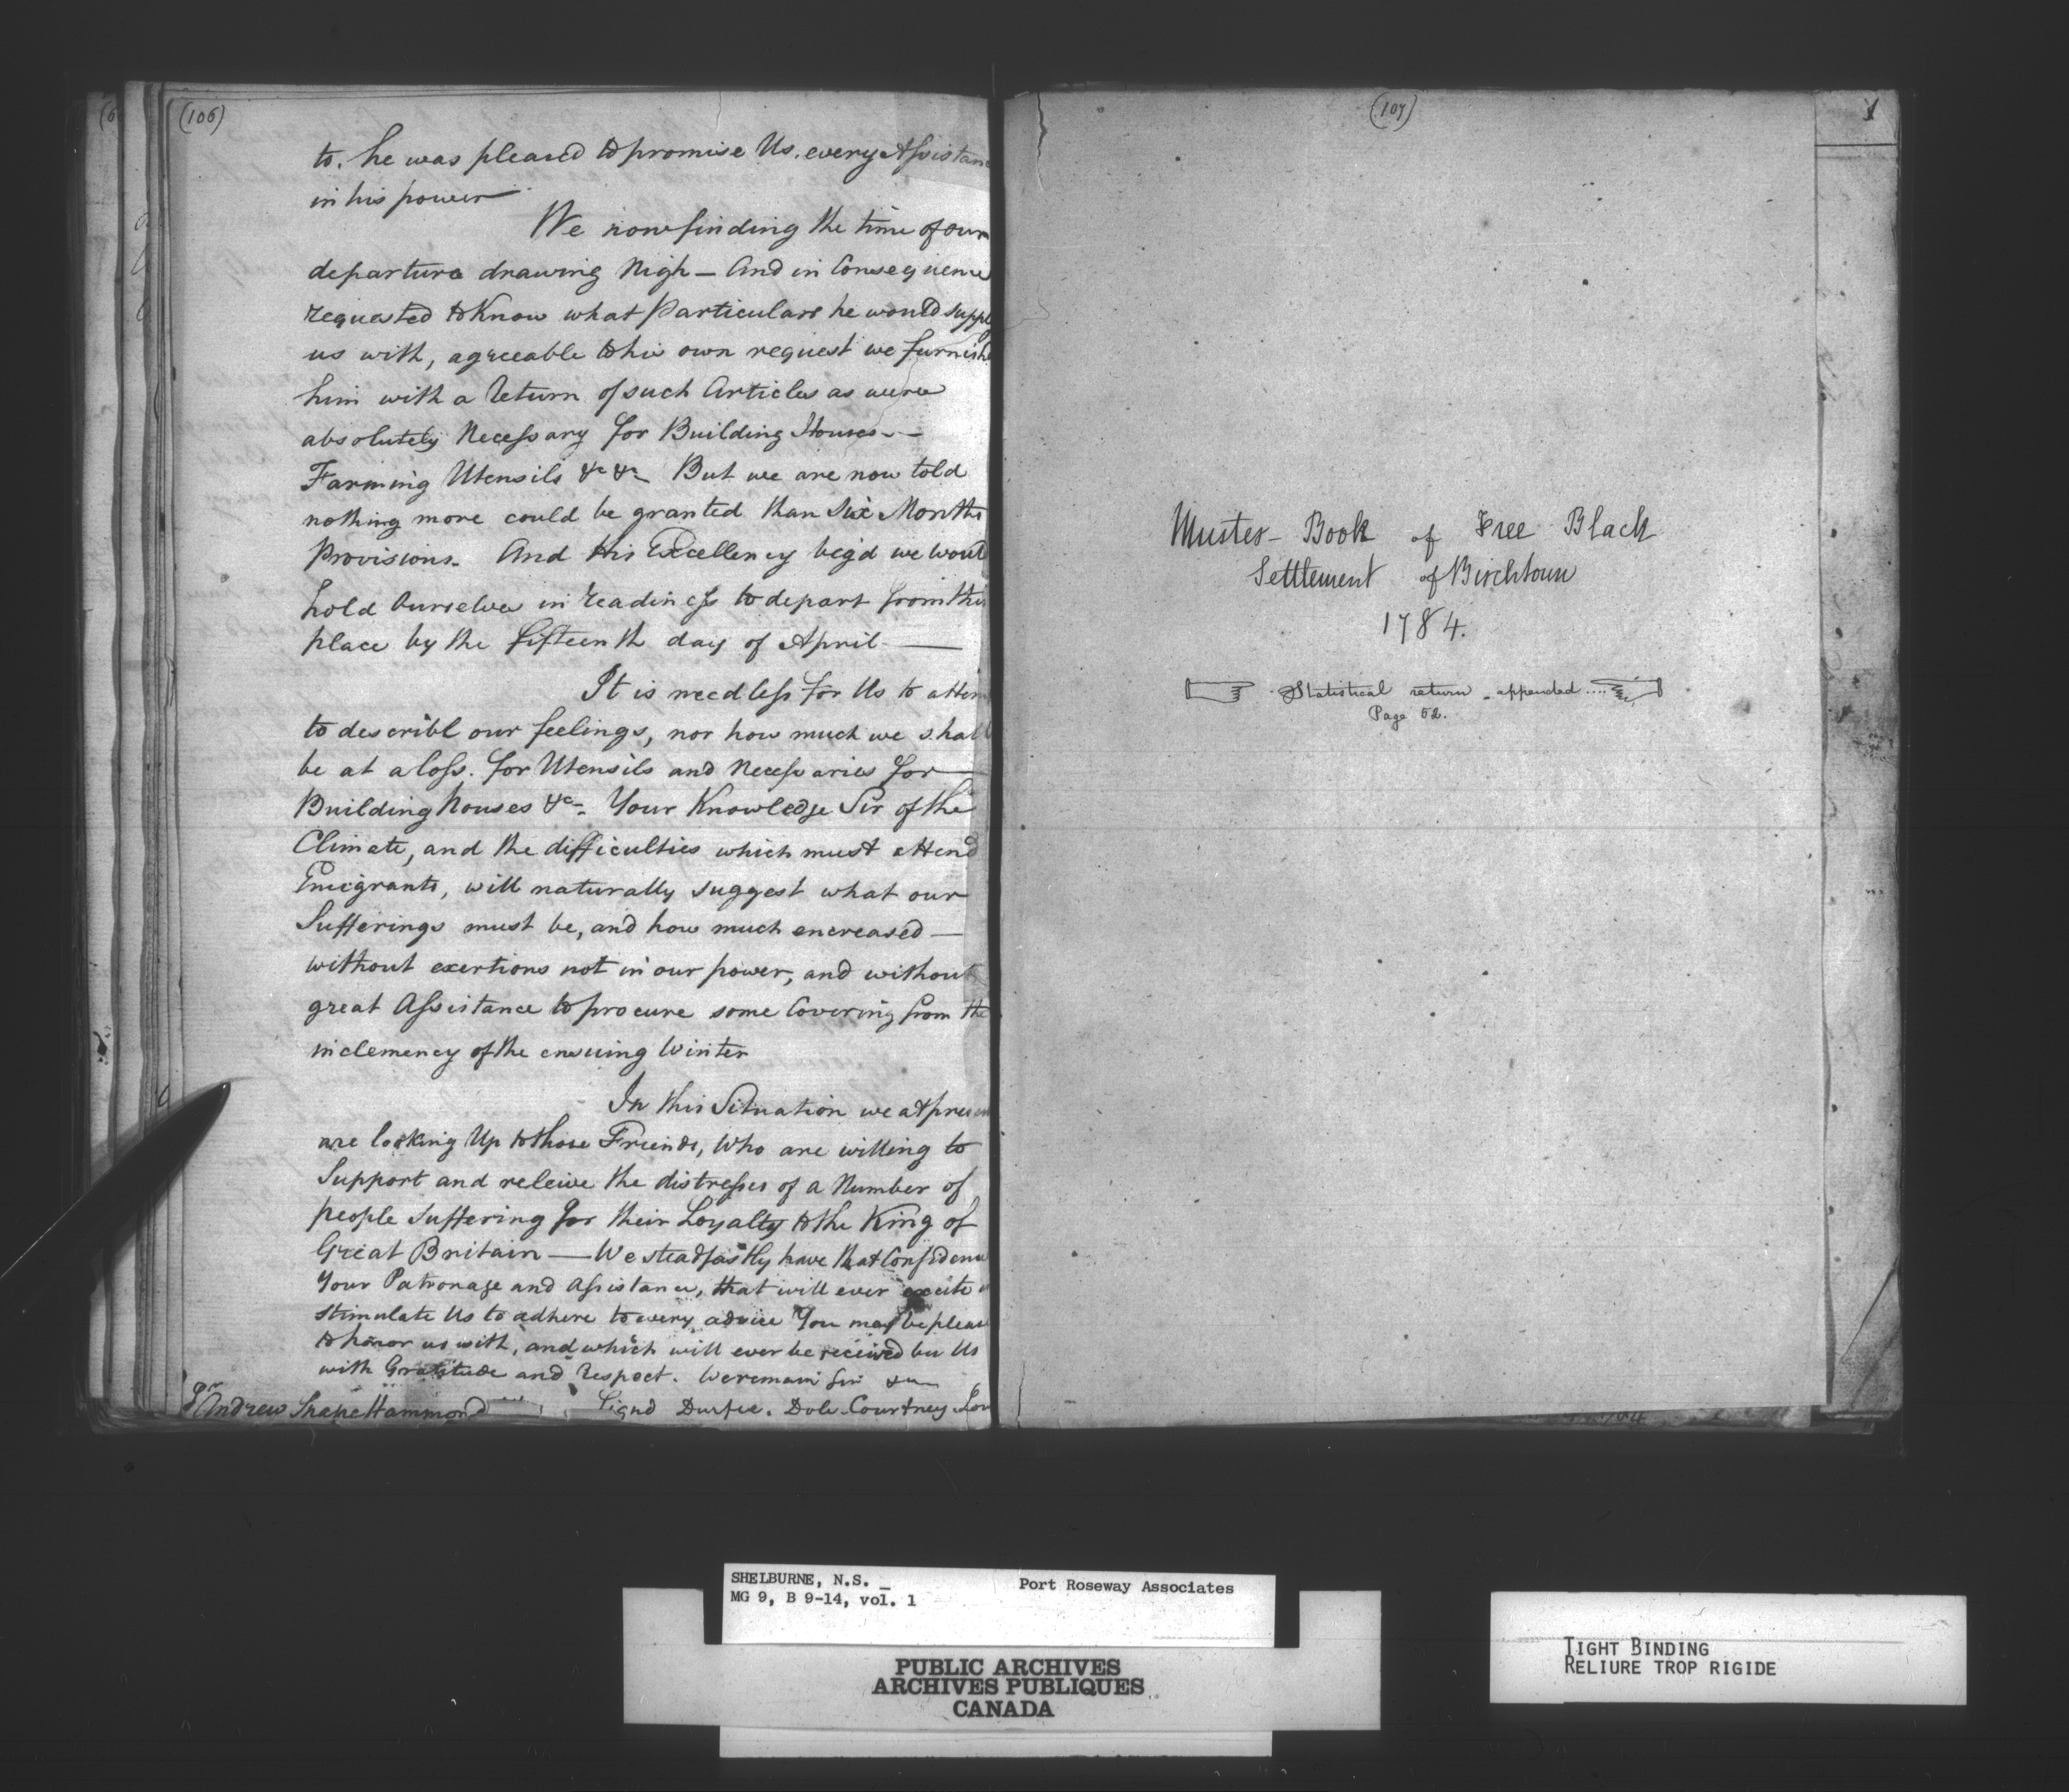 (106)
to. he was pleased to promise Us, every Assistan
in his power
We now finding the time of our
departure drawing Nigh — And in Consequence
requested to Know what Particulars he would supply
us with, agreeable to his own request we furnish
him with a Return of such Articles as were
absolutely Necessary for Building Houses —
Farming Utensils &c &c But we are now told
nothing more could be granted than Six Months
Provisions. And His Excellency beg'd we would
hold Ourselves in readiness to depart from this
place by the fifteenth day of April —
It is needless for Us to attem
to describe our feelings, nor how much we shall
be at a loss. for Utensils and Necessaries for
Building houses &c. Your Knowledge Sir of the
Climate, and the difficulties which must attend
Emigrants, will naturally suggest what our
Sufferings must be, and how much encreased —
without exertions not in our power, and without
great Assistance to procure some Covering from the
inclemency of the ensuing Winter
In this Situation we at presen
are looking Up to those Friends, Who are willing to
Support and releive the distresses of a Number of
people suffering for their Loyalty to the King of
Great Britain — We steadfastly have that Confidence
Your Patronage and Assistance, that will ever excite
stimulate Us to adhere to every advice You may be pleas
to honor us with, and which will ever be received by Us
with Gratitude and Respect. We remain Sir &c
Sr Andrew Snape Hammond Signd Durfee. Dole. Courtney
(107)
Muster-Book of Free Black
Settlement of Birchtown
1784.
Statistical return - appended ....
Page 52.
1
SHELBURNE, N.S. _ Port Roseway Associates
MG 9, B 9-14, vol. 1
PUBLIC ARCHIVES
ARCHIVES PUBLIQUES
CANADA
TIGHT BINDING
RELIURE TROP RIGIDE